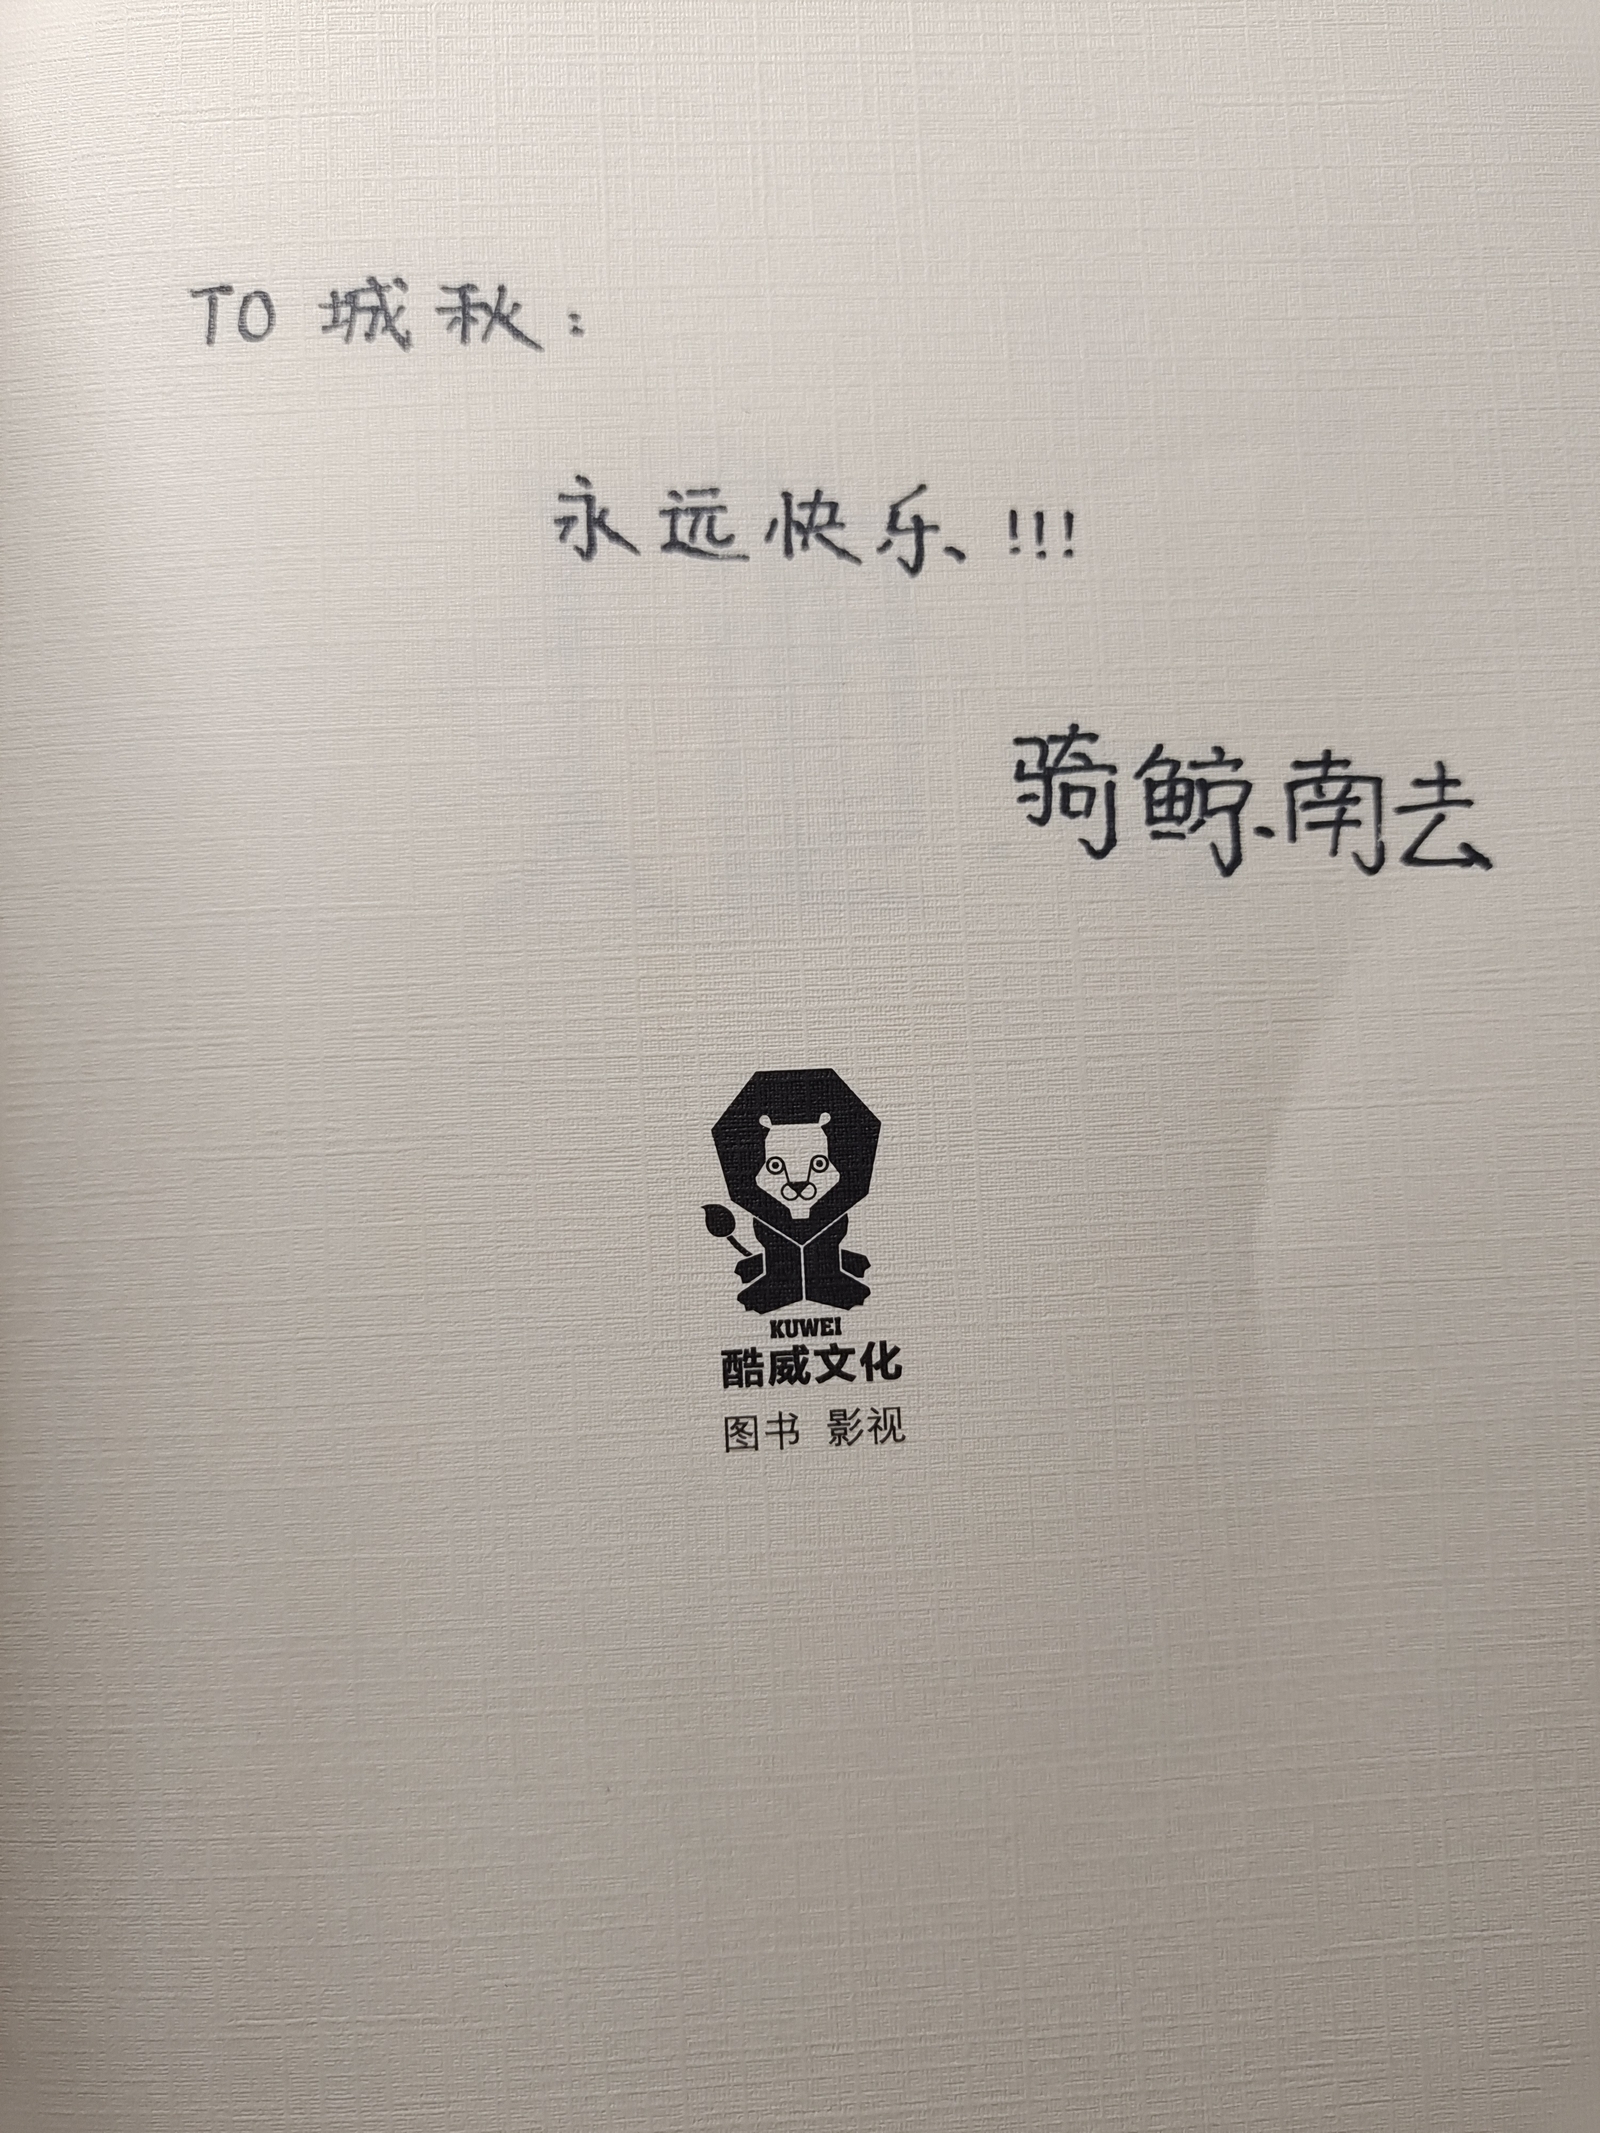 TO 城秋：
永远快乐!!!
骑鲸南去
KUWEI
酷威文化
图书 影视